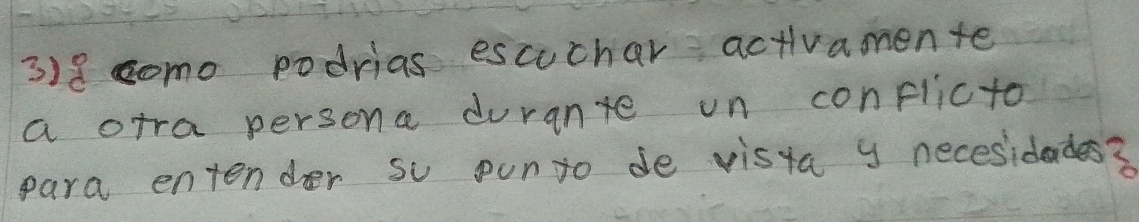 3) ¿ como podrias escuchar activamente
a otra persona durante un conflicto
para entender su punto de vista y necesidades?